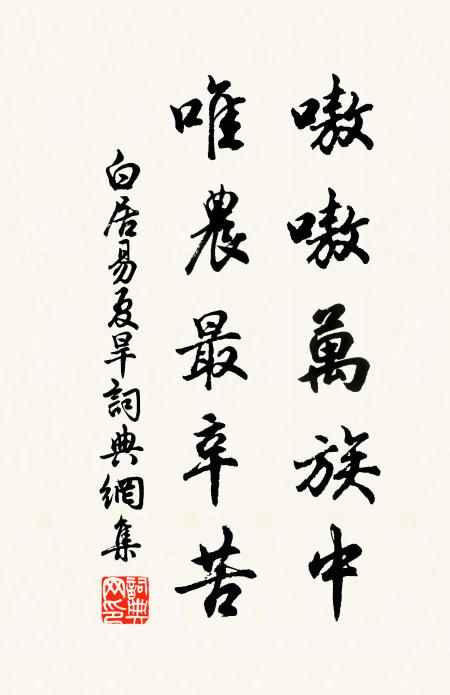 嗷嗷萬族中
唯農最辛苦
白居易夏旱詞典網集
詞典網印